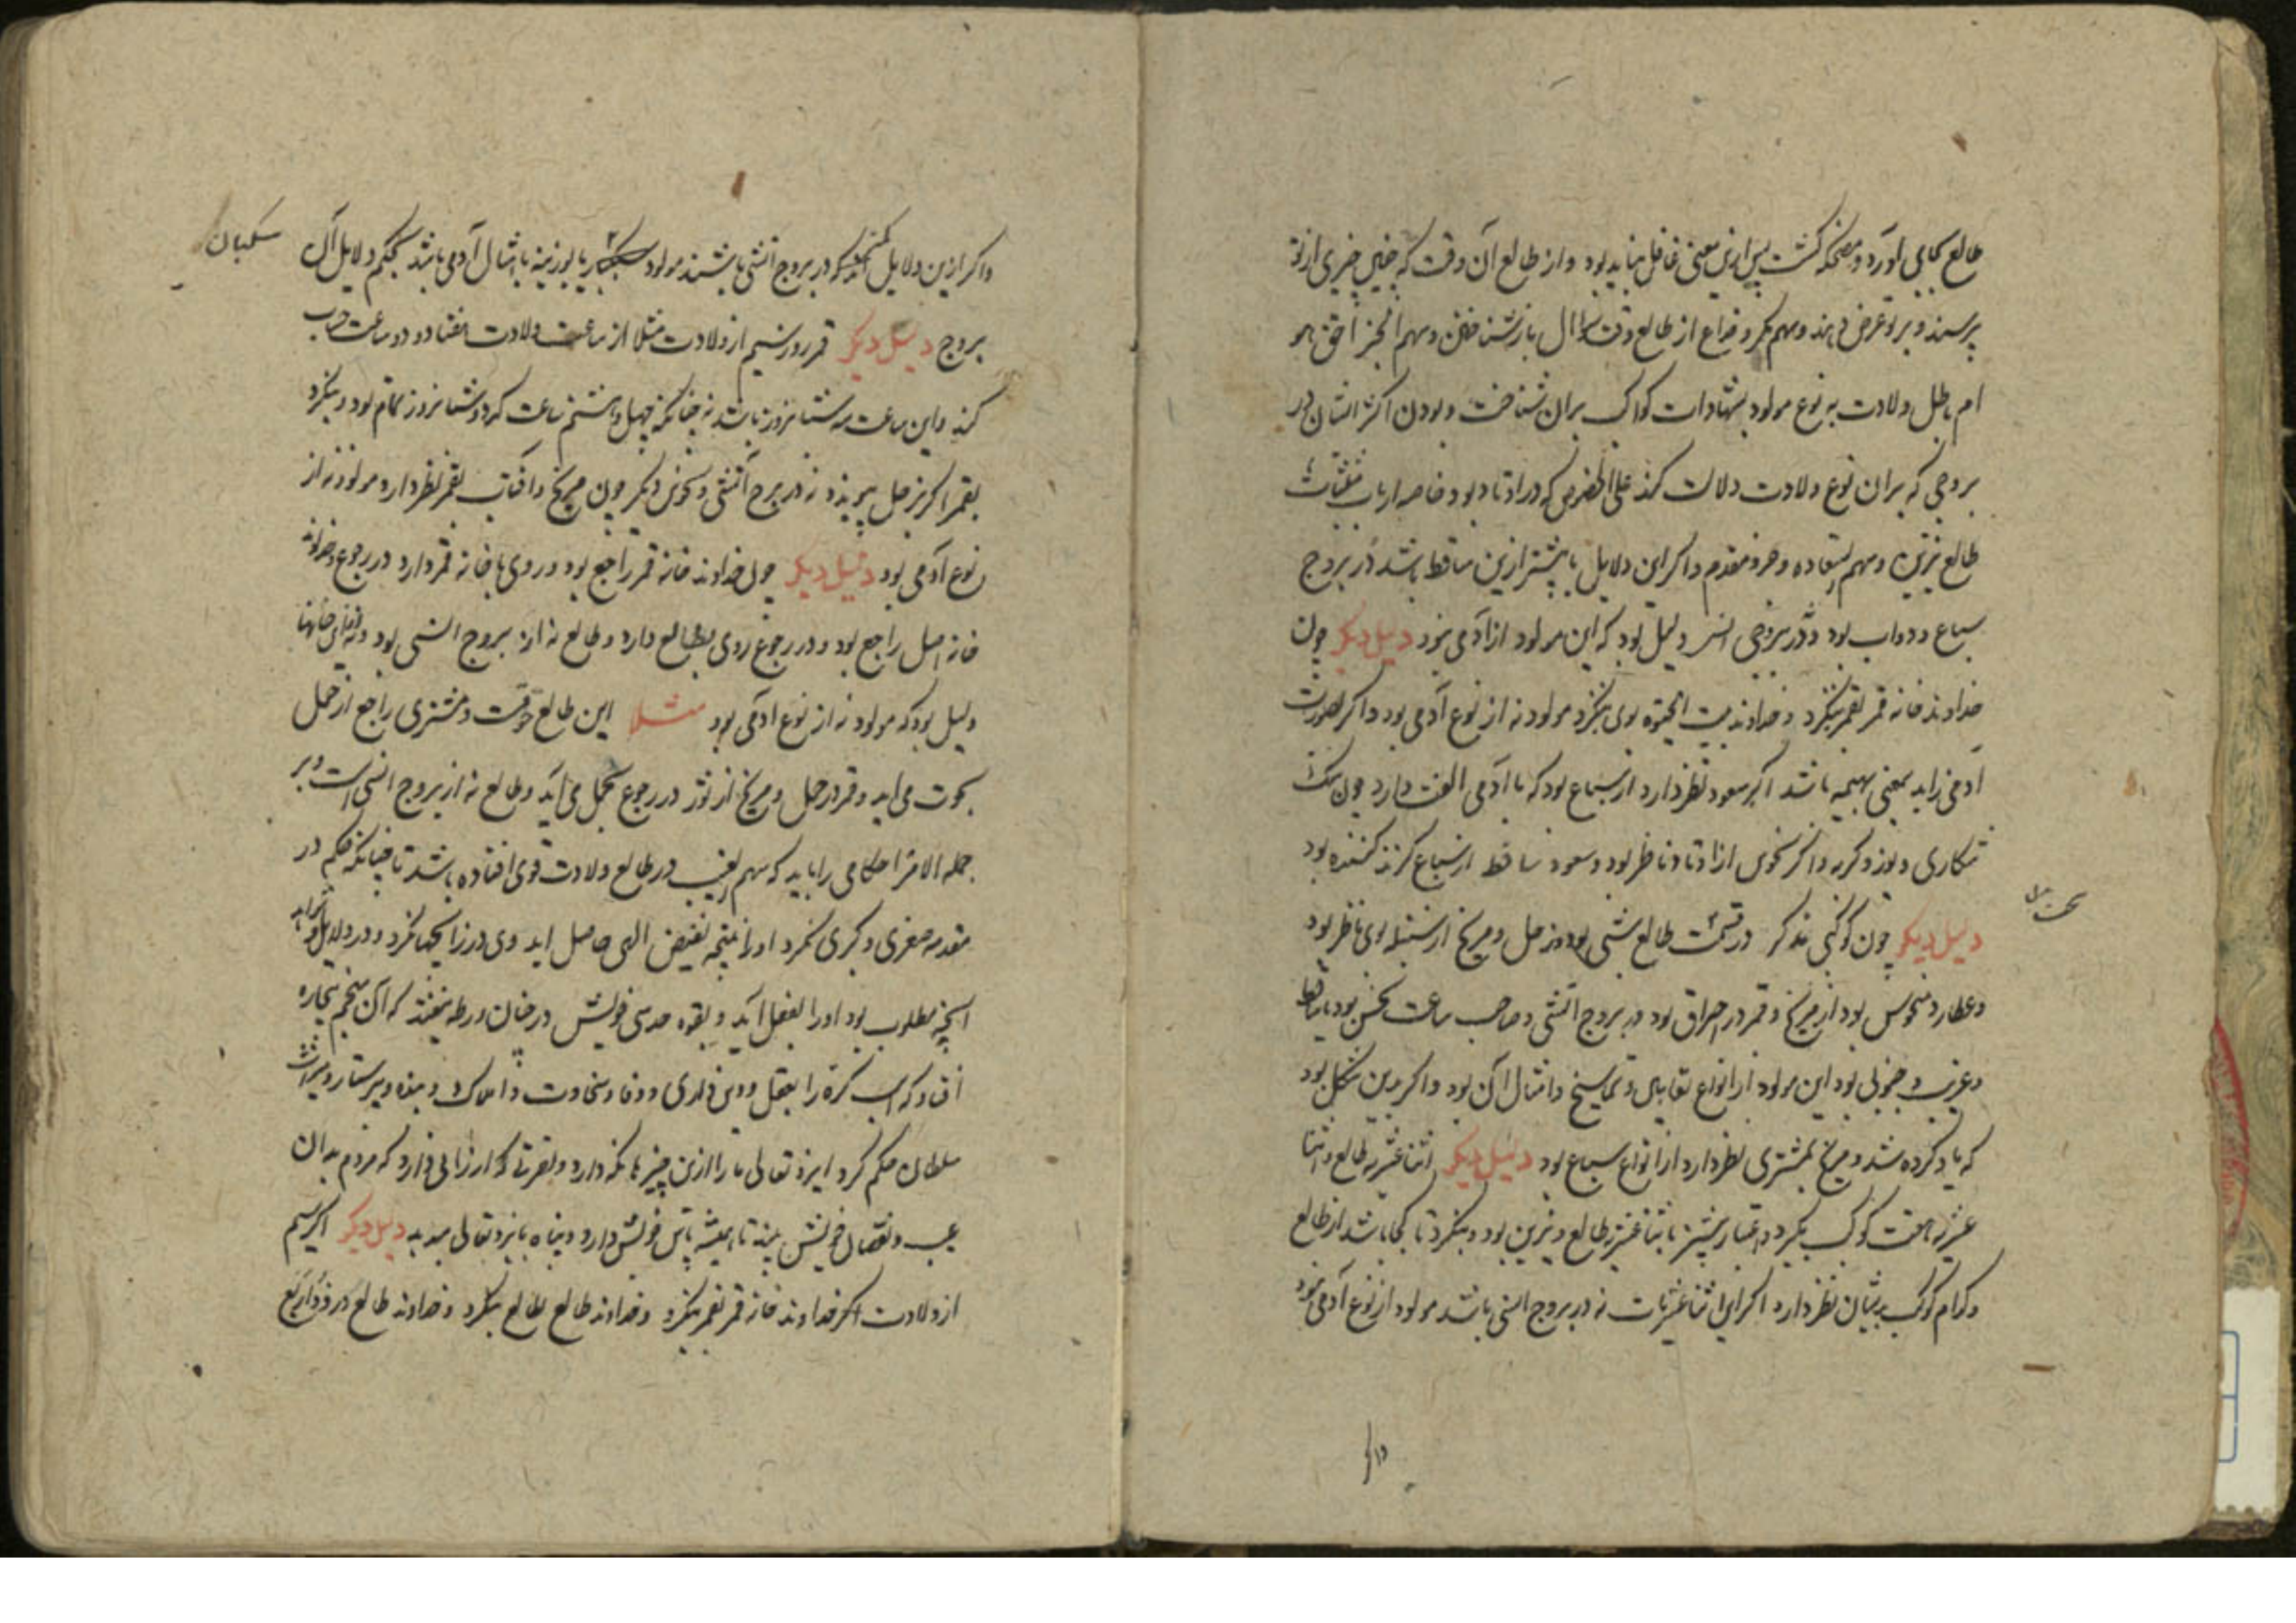 طالع بجایی آورد و مضحکه گشت پس ازین معنی غافل نباید بود و از طالع آن وقت که چنین چیزی از تو
پرسند و بر تو عرض دهند و سهم مکر و خداع از طالع وقت سوال باز شناختن و سهم
ولادت به نوع مولود بشهادات کواکب بران شناخت و بودن اکثر ایشان در
بروجی که بران نوع ولادت دلالت کند علی الخصوص که در اوتاد بود خاصه ارباب مثلثات
طالع نیرین و سهم السعاده و جزو مقدم و اکر این دلایل یا بیشتر ازین ساقط باشد در بروج
سباع و دواب بود و در بروجی انسی دلیل بود که این مولود از آدمی نبود دلیل دیکر چون
خداوند خانه قمر بقمر ننکرد و خداوند بیت الحیوة بوی ننکرد مولود نه از نوع آدمی بود و اکر بصورت
آدمی زاید بمعنی بهیمه باشد اکر سعود نظر دارد از سباع بود که با آدمی الفت دارد چون سک
شکاری و یوز و کربه و اکر نحوس از اوتاد ناظر بود و سعود ساقط از سباع کزند کننده بود
دلیل دیکر چون کوکبی مذکر در قسمت طالع بود و زحل و مریخ بوی ناظر بود
و عطارد منحوس بود از مریخ و قمر در احراق بود در بروج آتشی و صاحب ساعت نحس بود
و غریب و جنوبی بود این مولود از انواع و تماسیح و امثال آن بود و اکر بدین شکل بود
که یاد کرده شد و مریخ بمشتری نظر دارد از انواع سباع بود دلیل دیکر اثنا عشریه طالع و اثنا
عشریه هفت کوکب بکیرد و اعتبار بیشتر باثنا عشریه طالع و نیرین بود و بنکرد تا کجا باشد از طالع
و کدام کوکب بدیشان نظر دارد اکر این اثنا عشریات نه در بروج انسی باشد مولود از نوع آدمی نبود
واکر ازین دلایل در بروج آتشی باشند مولود یا بوزینه یا امثال آدمی باشد بحکم دلایل آن
سکبان
بروج دلیل دیکر قمر روز سیم از ولادت مثلا از ساعت ولادت هفتاد و دو ساعت حساب
کند و این ساعت سه شبانروز باشد چنانکه چهل و هشتم ساعت که دو شبانروز تمام بود و بنکرد
بقمر اکر بزحل پیوندد نه در برج آتشی و نحوس دیکر چون مریخ و آفتاب بقمر نظر دارد مولود نه از
نوع آدمی بود دلیل دیکر چون خداوند خانه قمر راجع بود و روی با خانه قمر دارد در رجوع و خداوند
خانه اصل راجع بود و در رجوع روی بطالع دارد و طالع نه از بروج انسی بود
دلیل بود که مولود نه از نوع آدمی بود مثلا این طالع حوتست و مشتری راجع از حمل
بحوت می آید و قمر در حمل و مریخ از ثور در رجوع بحمل می آید و طالع نه از بروج انسی است و بر
جمله الامر احکامی را باید که سهم الغیب در طالع ولادت قوی افتاده باشد تا چنانکه حکم در
مقدمه صغری و کبری نکرد او را نتیجه بفیض الهی حاصل آید وی در زایجها نکرد و در دلایل
آنچه مطلوب بود او را بفعل آید و بقوه حدسی خویش در چنان ورطه نیفتد که آن منجم بیچاره
افتاد که اسب کره را بعقل و دین داری و وفا و سخاوت و املاک و بنده و پرستار و میراث
سلطان حکم کرد ایزد تعالی ما را ازین چیزها نکه دارد و بصیرتی که ارزانی دارد که مردم بدان
عیب و نقصان خویش بیند تا همیشه پاس خویش دارد و پناه بایزد تعالی میدهد دلیل دیکر اکر سیم
از ولادت اکر خداوند خانه قمر بقمر ننکرد و خداوند طالع بطالع ننکرد و خداوند طالع در